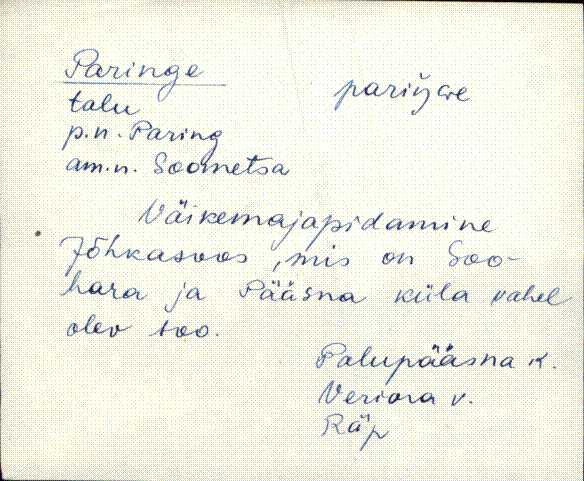 Paringe
pariŋɢe
talu
p.n. Paring
am.n. Soometsa
Väikemajapidamine
Jõhkasoos, mis on Soo-
hara ja Pääsna küla vahel
olev soo.
Palupääsna k.
Veriora v.
Räp